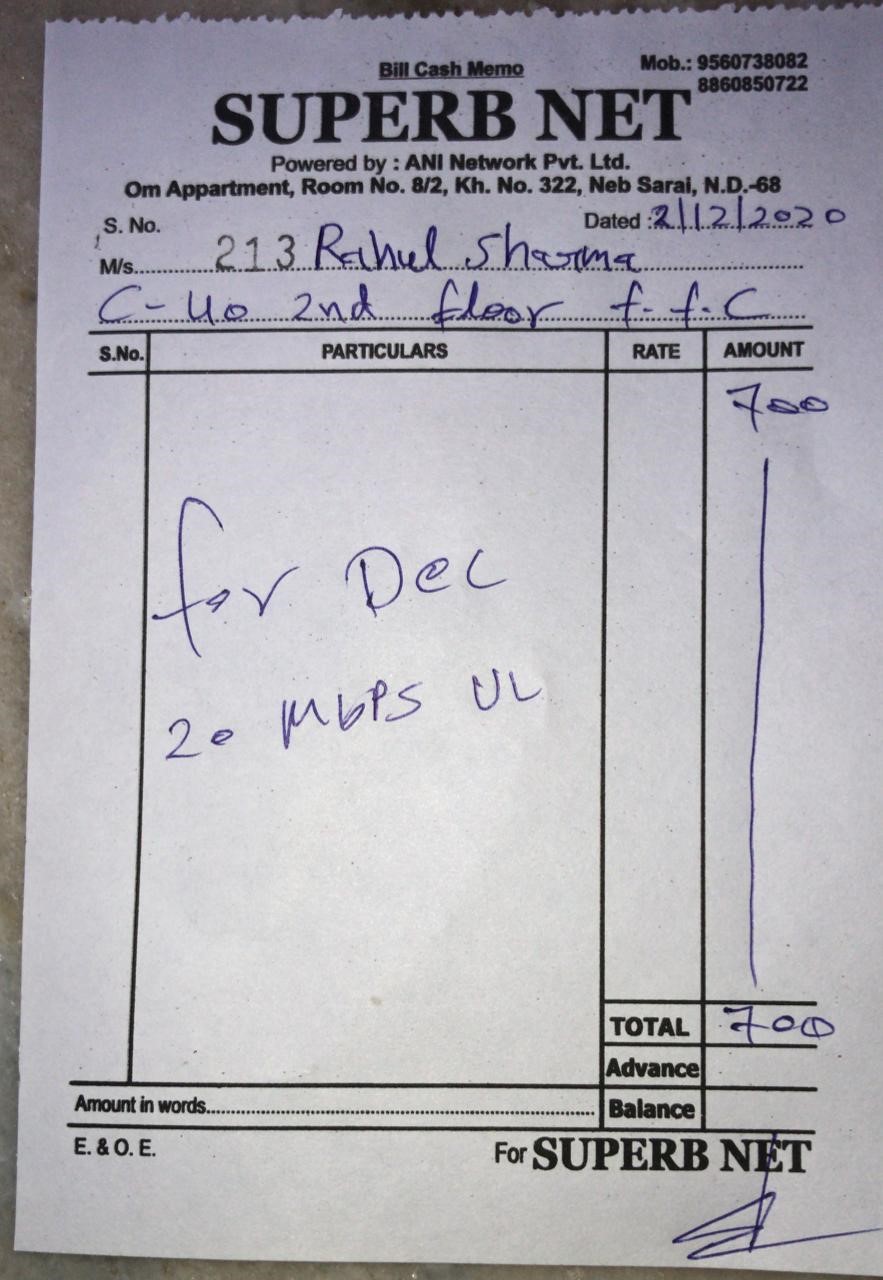 Bill Cash Memo
Mob.: 9560738082
8860850722
SUPERB NET
Powered by : ANI Network Pvt. Ltd.
Om Appartment, Room No. 8/2, Kh. No. 322, Neb Sarai, N.D.-68
S. No. 213
Dated : 2/12/2020
M/s. Rahul Sharma
C-40 2nd floor f.f.C
S.No. PARTICULARS RATE AMOUNT
700
for Dec
20 MbPS UL
TOTAL 700
Advance
Amount in words
Balance
E. & O. E.
For SUPERB NET